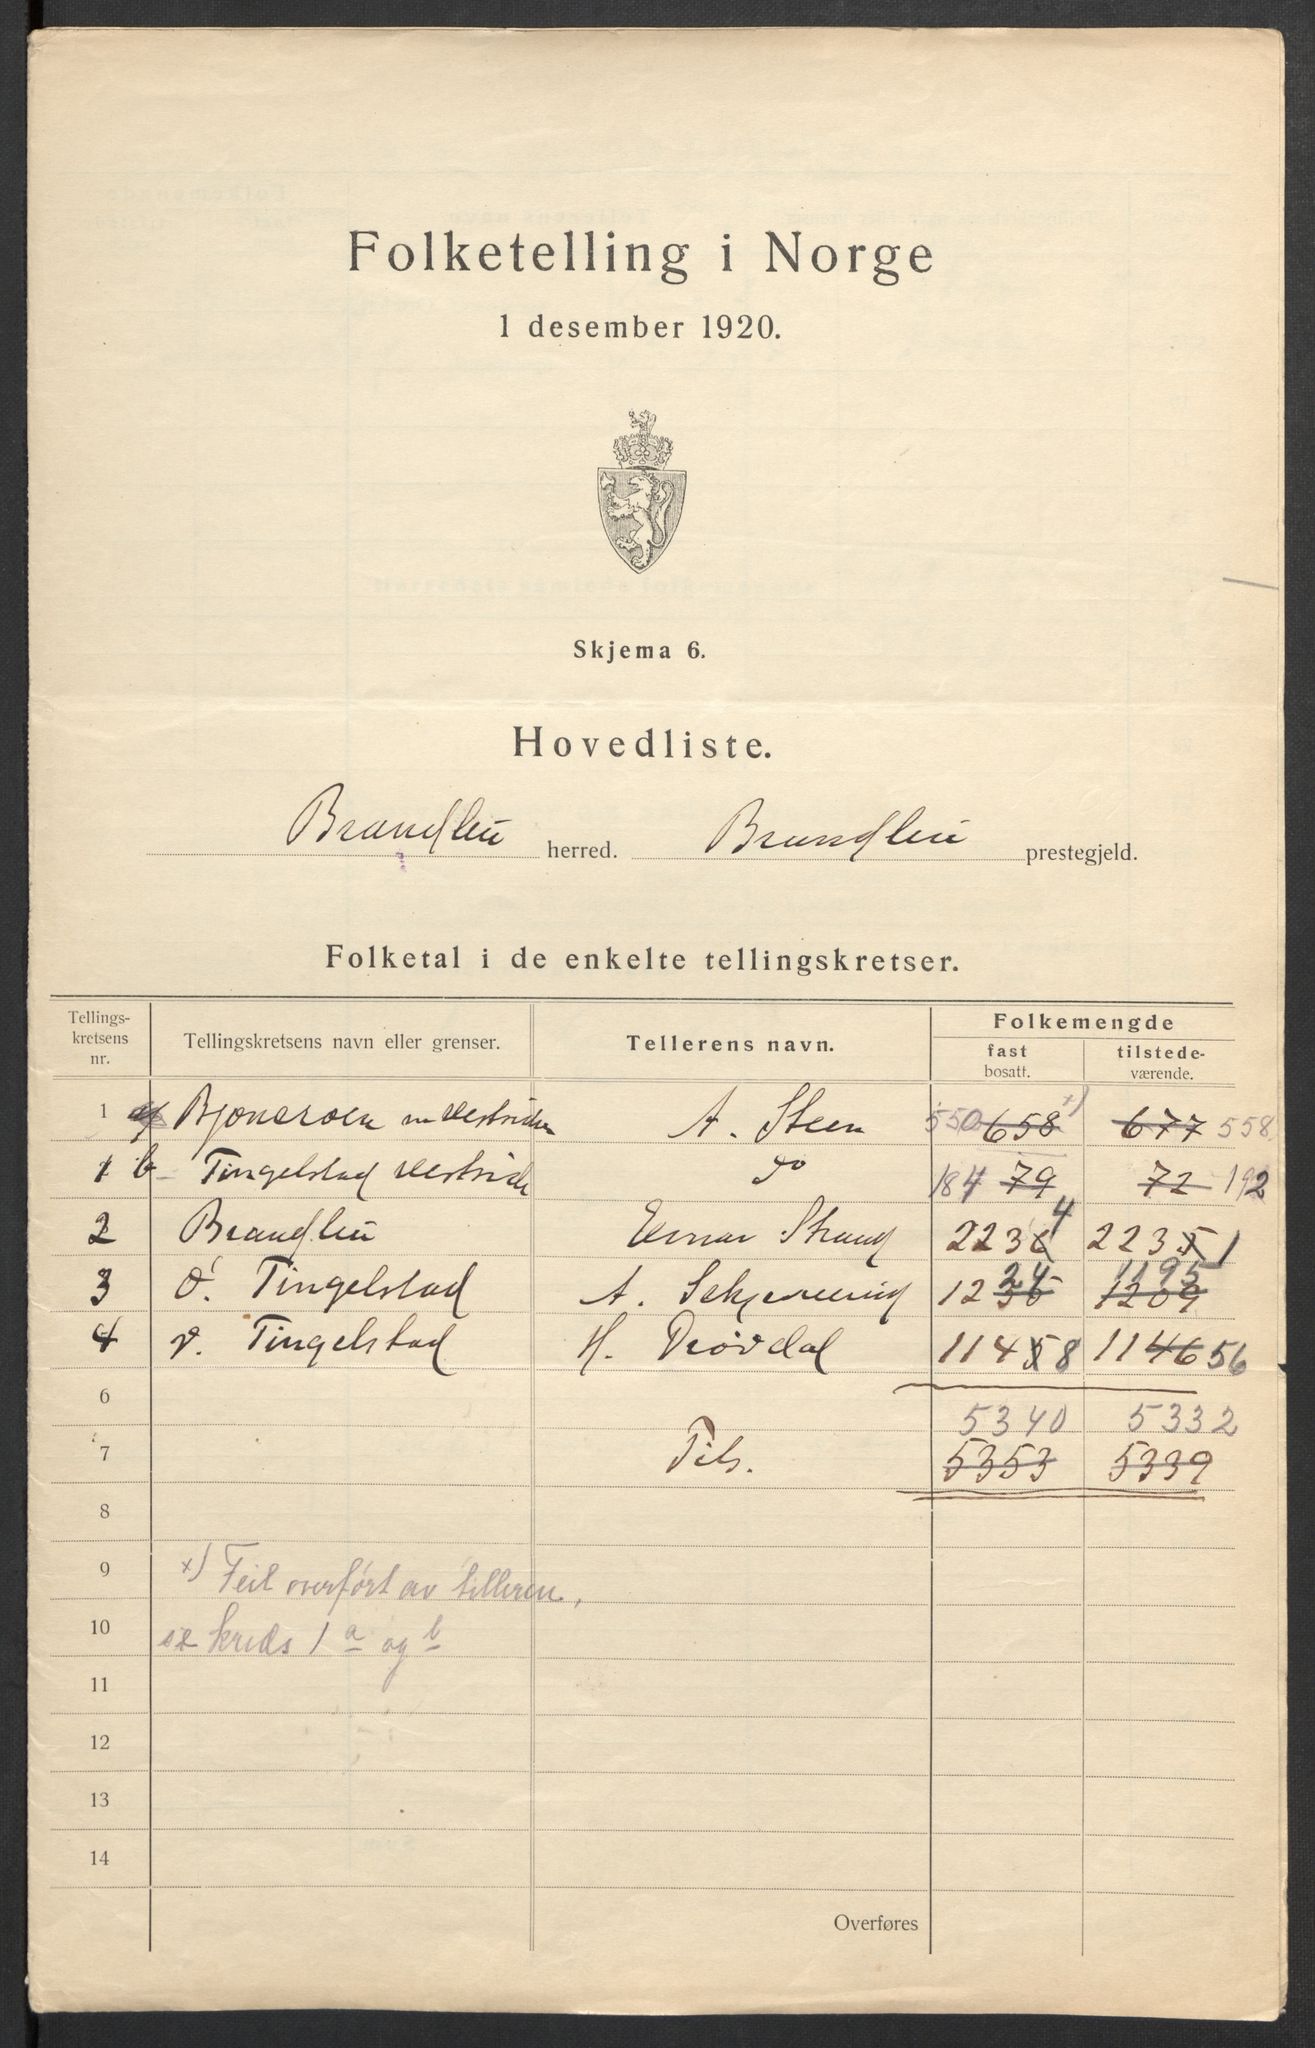 Folketelling i Norge
1 desember 1920.
Skjema 6.
Hovedliste.
Brandbu herred. Brandbu prestegjeld.
Folketal i de enkelte tellingskretser.
Tellings-
kretsens
nr.
Tellingskretsens navn eller grenser.
Tellerens navn.
Folkemengde
fast
bosatt.
tilstede-
værende.
1 a Bjoneroen m vestsiden A. Steen 550 658 x) 677 558
1 b Tingelstad vestside do 184 79 72 192
2 Brandbu Einar Strand 2236 4 2235 1
3 Ø. Tingelstad A. 1236 24 1209 1195
4 V. Tingelstad H. Prøvdal 1145 8 1146 56
6 5340 5332
7 Tils. 5353 5339
8
9 x) Feil overført av telleren,
10 se kreds 1 a og b
11
12
13
14
Overføres